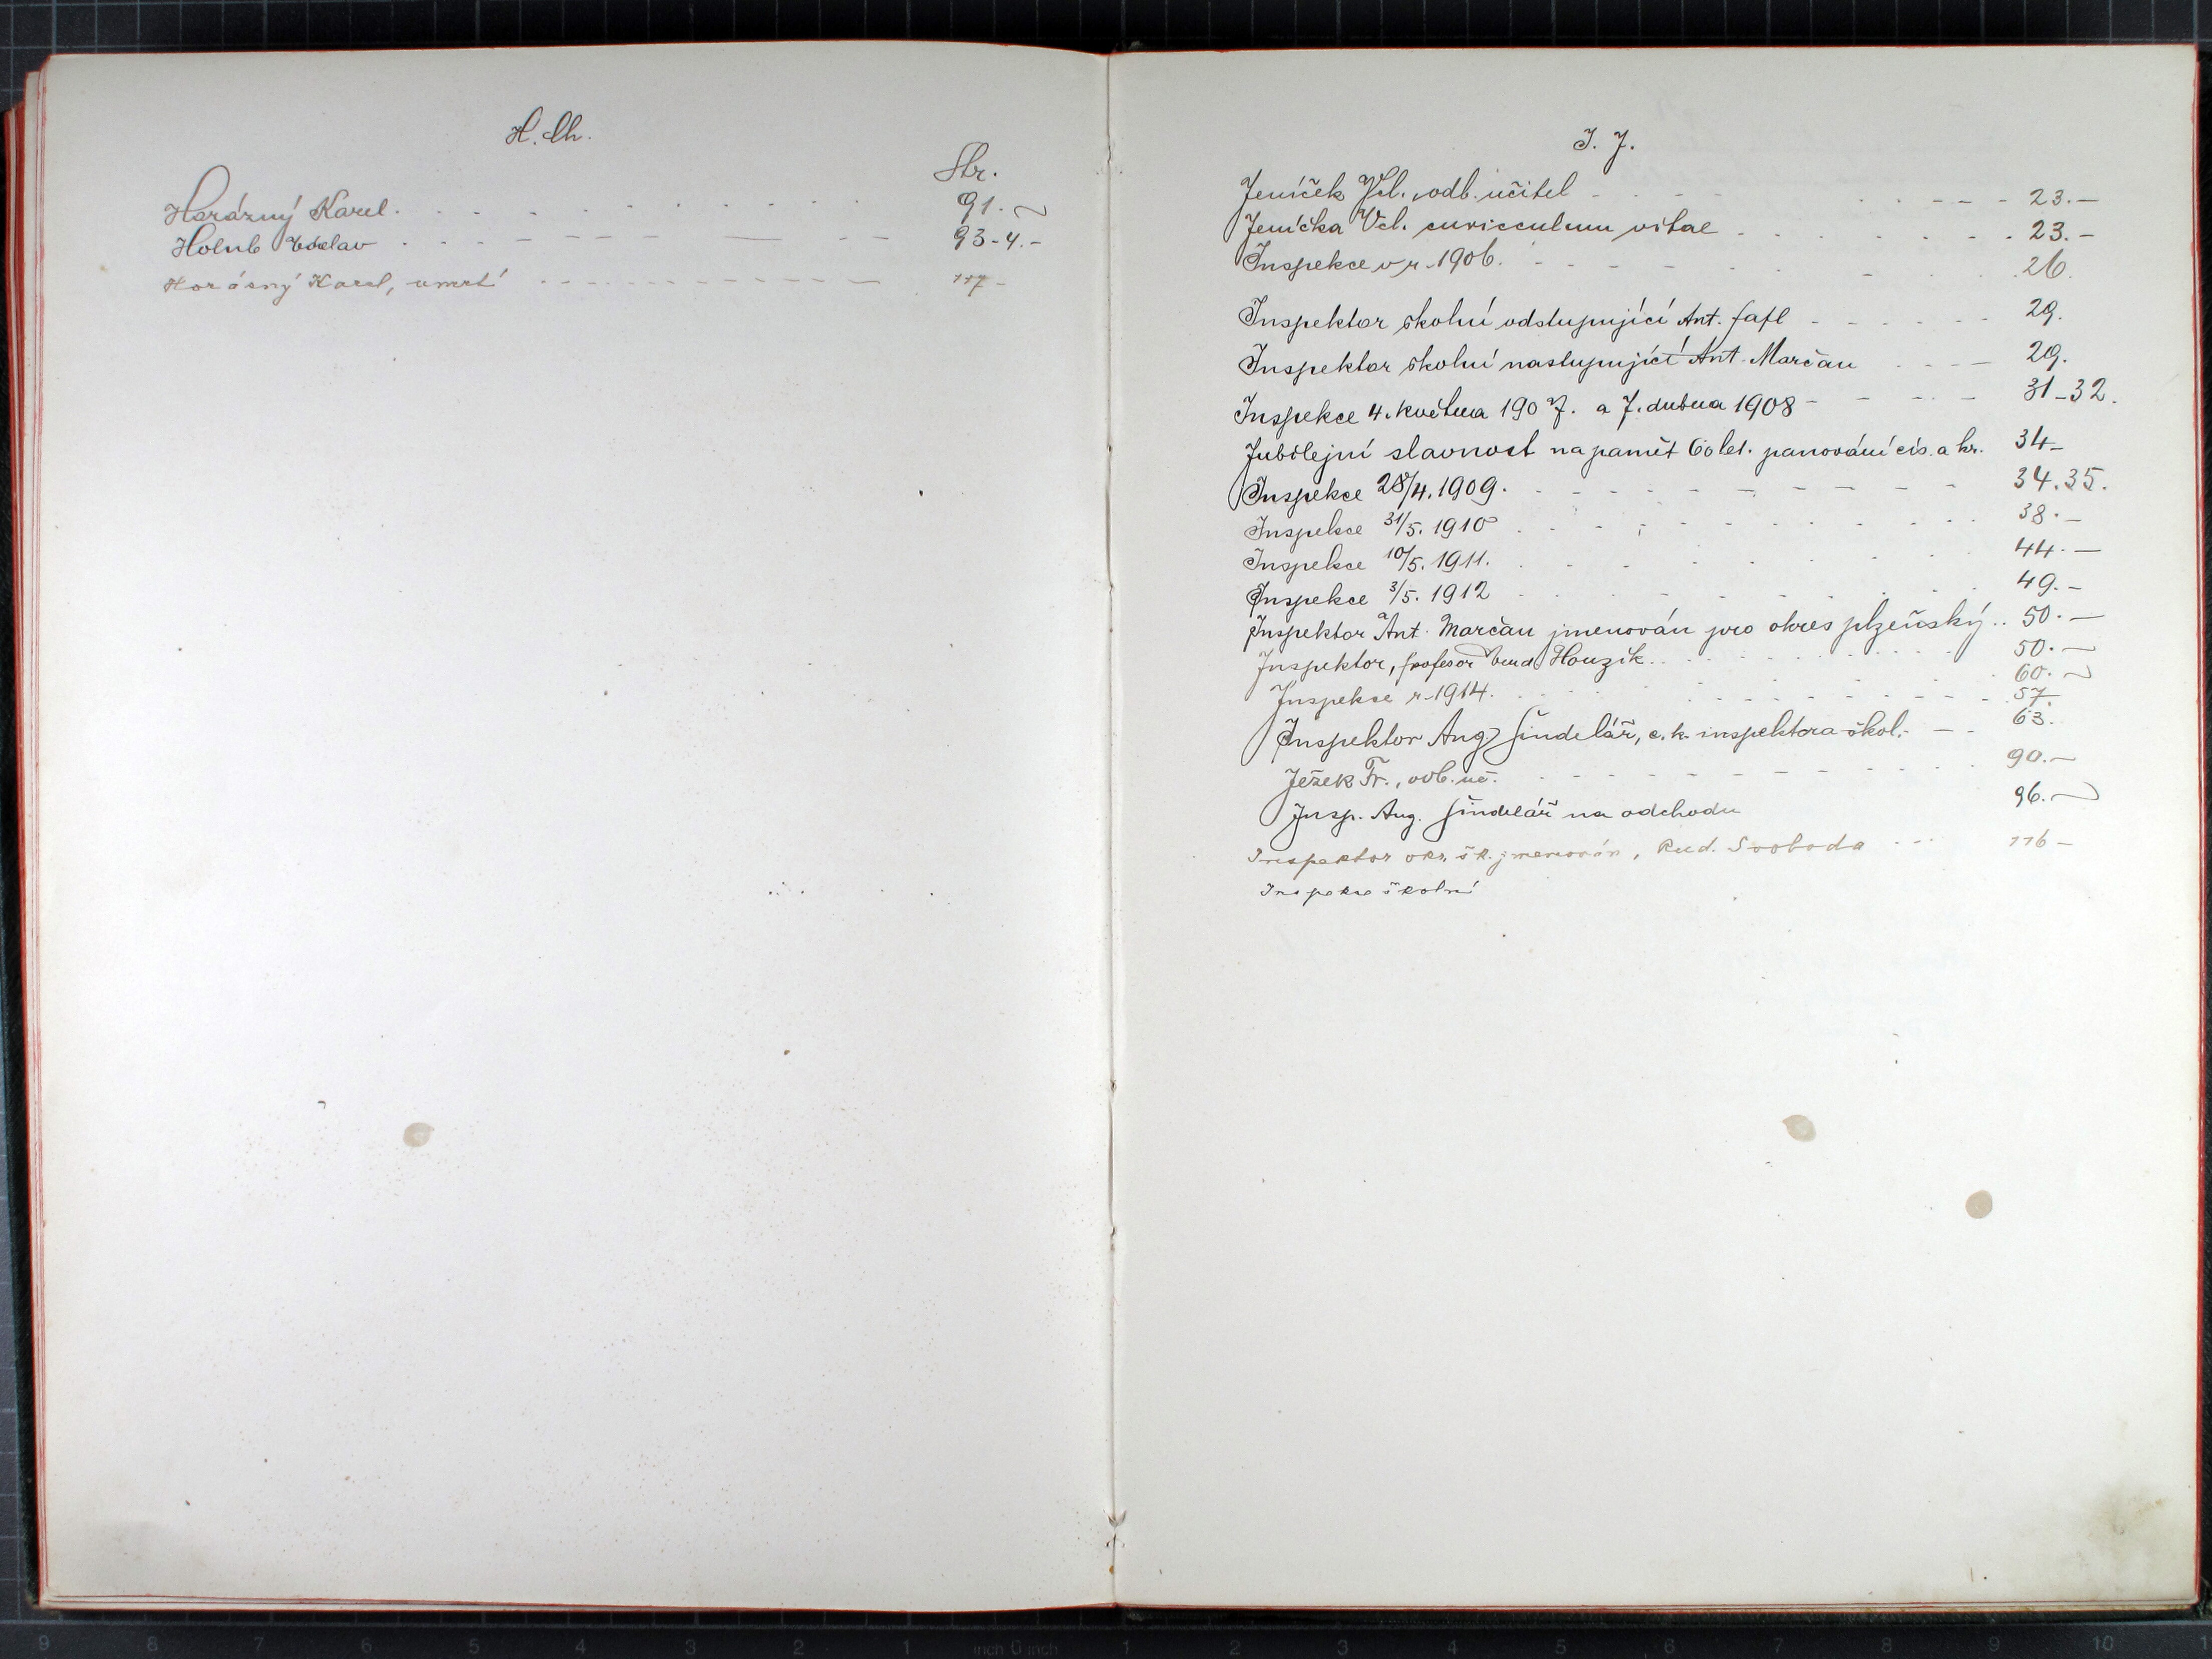 H. Ch.
Str.
Horázný Karel. 91.
Holub Václav 93-4.-
Horázný Karel, úmrtí 117-
I. J.
Jeníček Vcl., odb. učitel 23.-
Jeníčka Vcl. curicculum vitae 23.-
Inspekce v r. 1906. 26.
Inspektor školní odstupující Ant. Šafl 29.
Inspektor školní nastupující Ant. Marčan 29.
Inspekce 4. května 1907. a 7. dubna 1908 31-32.
Jubilejní slavnost na pamět 60 let. panování cís. a kr. 34-
Inspekce 28/4. 1909. 34.35.
Inspekce 31/5. 1910 38.-
Inspekce 10/5. 1911. 44.-
Inspekce 3/5. 1912 49.-
Inspektor Ant. Marčan jmenován pro okres plzeňský.. 50.-
Inspektor, profesor Houzík.. 50.-
60.
Inspekce r. 1914. 57.
Inspektor Aug. Šindelář, c.k. inspektora škol. 63.
Ježek Fr., odb. uč. 90.-
Insp. Aug. Šindelář na odchodu 96.
Inspektor okr. šk. jmenován, Rud. Svoboda 116-
Inspekce školní